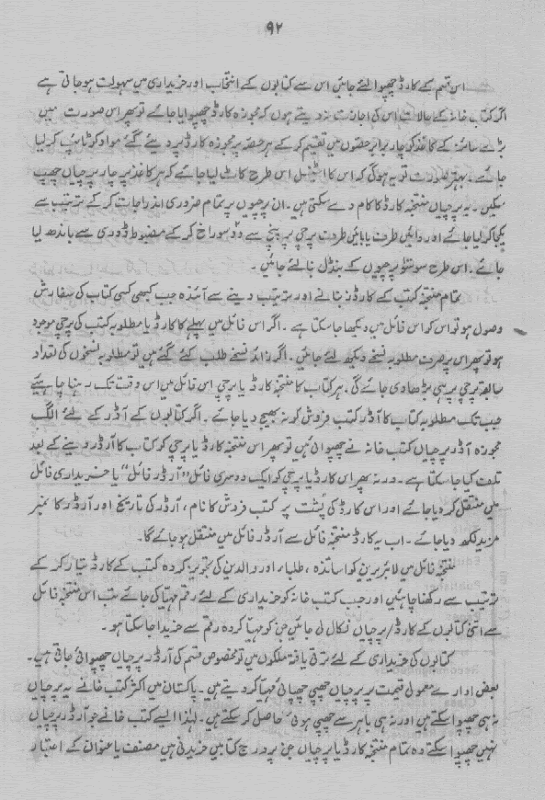 ۹۲
اس قسم کے کارڈ چھپوا لئے جائیں اس سے کتابوں کے انتخاب اور خریداری میں سہولت ہو جاتی ہے
اگر کتب خانہ کے حالات اس کی اجازت نہ دیتے ہوں کہ مجوزہ کارڈ چھپوایا جائے تو پھر اس صورت میں
بڑے سائز کے کاغذ کو چار برابر حصوں میں تقسیم کر کے ہر حصہ پر مجوزہ کارڈ پر دیئے گئے مواد کو ٹائپ کر لیا
جائے۔ بہتر صورت تو یہ ہوگی کہ اس کا اسٹینسل اس طرح کاٹ لیا جائے کہ ہر کاغذ پر چار پرچیاں چھپ
سکیں۔ یہ پرچیاں منتخبہ کارڈ کا کام دے سکتی ہیں۔ ان پرچیوں پر تمام ضروری اندراجات کر کے ترتیب سے
یکجا کر لیا جائے اور دائیں طرف یا بائیں طرف پرچی پر پنچ سے دو سوراخ کر کے مضبوط ڈوری سے باندھ لیا
جائے۔ اس طرح سو سو پرچیوں کے بنڈل بنا لئے جائیں۔
تمام منتخبہ کتب کے کارڈ بنانے اور ترتیب دینے سے آئندہ جب کبھی کسی کتاب کی سفارش
وصول ہو تو اس کو اس فائل میں دیکھا جا سکتا ہے۔ اگر اس فائل میں پہلے کا کارڈ یا مطلوبہ کتب کی پرچی موجود
ہو تو پھر اس پر صرف مطلوبہ نسخے دیکھ لئے جائیں۔ اگر زائد نسخے طلب کئے گئے ہیں تو مطلوبہ نسخوں کی تعداد
سابقہ پرچی پر ہی بڑھا دی جائے گی۔ ہر کتاب کا منتخبہ کارڈ یا پرچی اس فائل میں اس وقت تک رہنا چاہیئے
جب تک مطلوبہ کتاب کا آرڈر کتب فروش کو نہ بھیج دیا جائے۔ اگر کتابوں کے آڈر کے لئے الگ
مجوزہ آڈر پرچیاں کتب خانہ نے چھپوائی ہیں تو پھر اس منتخبہ کارڈ یا پرچی کو کتاب کا آرڈر دینے کے بعد
تلف کیا جا سکتا ہے۔ ورنہ پھر اس کارڈ یا پرچی کو ایک دوسری فائل "آرڈر فائل" یا خریداری فائل
میں منتقل کر دیا جائے اور اس کارڈ کی پُشت پر کتب فروش کا نام، آرڈر کی تاریخ اور آرڈر کا نمبر
مزید لکھ دیا جائے۔ اب یہ کارڈ منتخبہ فائل سے آرڈر فائل میں منتقل ہو جائے گا۔
منتخبہ فائل میں لائبریرین کو اساتذہ، طلباء اور والدین کی تجویز کردہ کتب کے کارڈ تیار کر کے
ترتیب سے رکھنا چاہئیں اور جب کتب خانہ کو خریداری کے لئے رقم مہیا کی جائے تب اس منتخبہ فائل
سے اتنی کتابوں کے کارڈ/پرچیاں نکال لی جائیں جن کو مہیا کردہ رقم سے خریدا جا سکتا ہو۔
کتابوں کی خریداری کے لئے ترقی یافتہ ملکوں میں تو مخصوص قسم کی آرڈر پرچیاں چھپوائی جاتی ہیں۔
بعض ادارے معمولی قیمت پر یہ پرچیاں چھپی چھپائی مہیا کر دیتے ہیں۔ پاکستان میں اکثر کتب خانے یہ پرچیاں
نہ ہی چھپوا سکتے ہیں اور نہ ہی باہر سے چھپی ہوئی حاصل کر سکتے ہیں۔ لہٰذا ایسے کتب خانے جو آرڈر پرچیاں
نہیں چھپوا سکتے وہ تمام منتخبہ کارڈ یا پرچیاں جن پر درج کتابیں خریدنی ہیں مصنف یا عنوان کے اعتبار